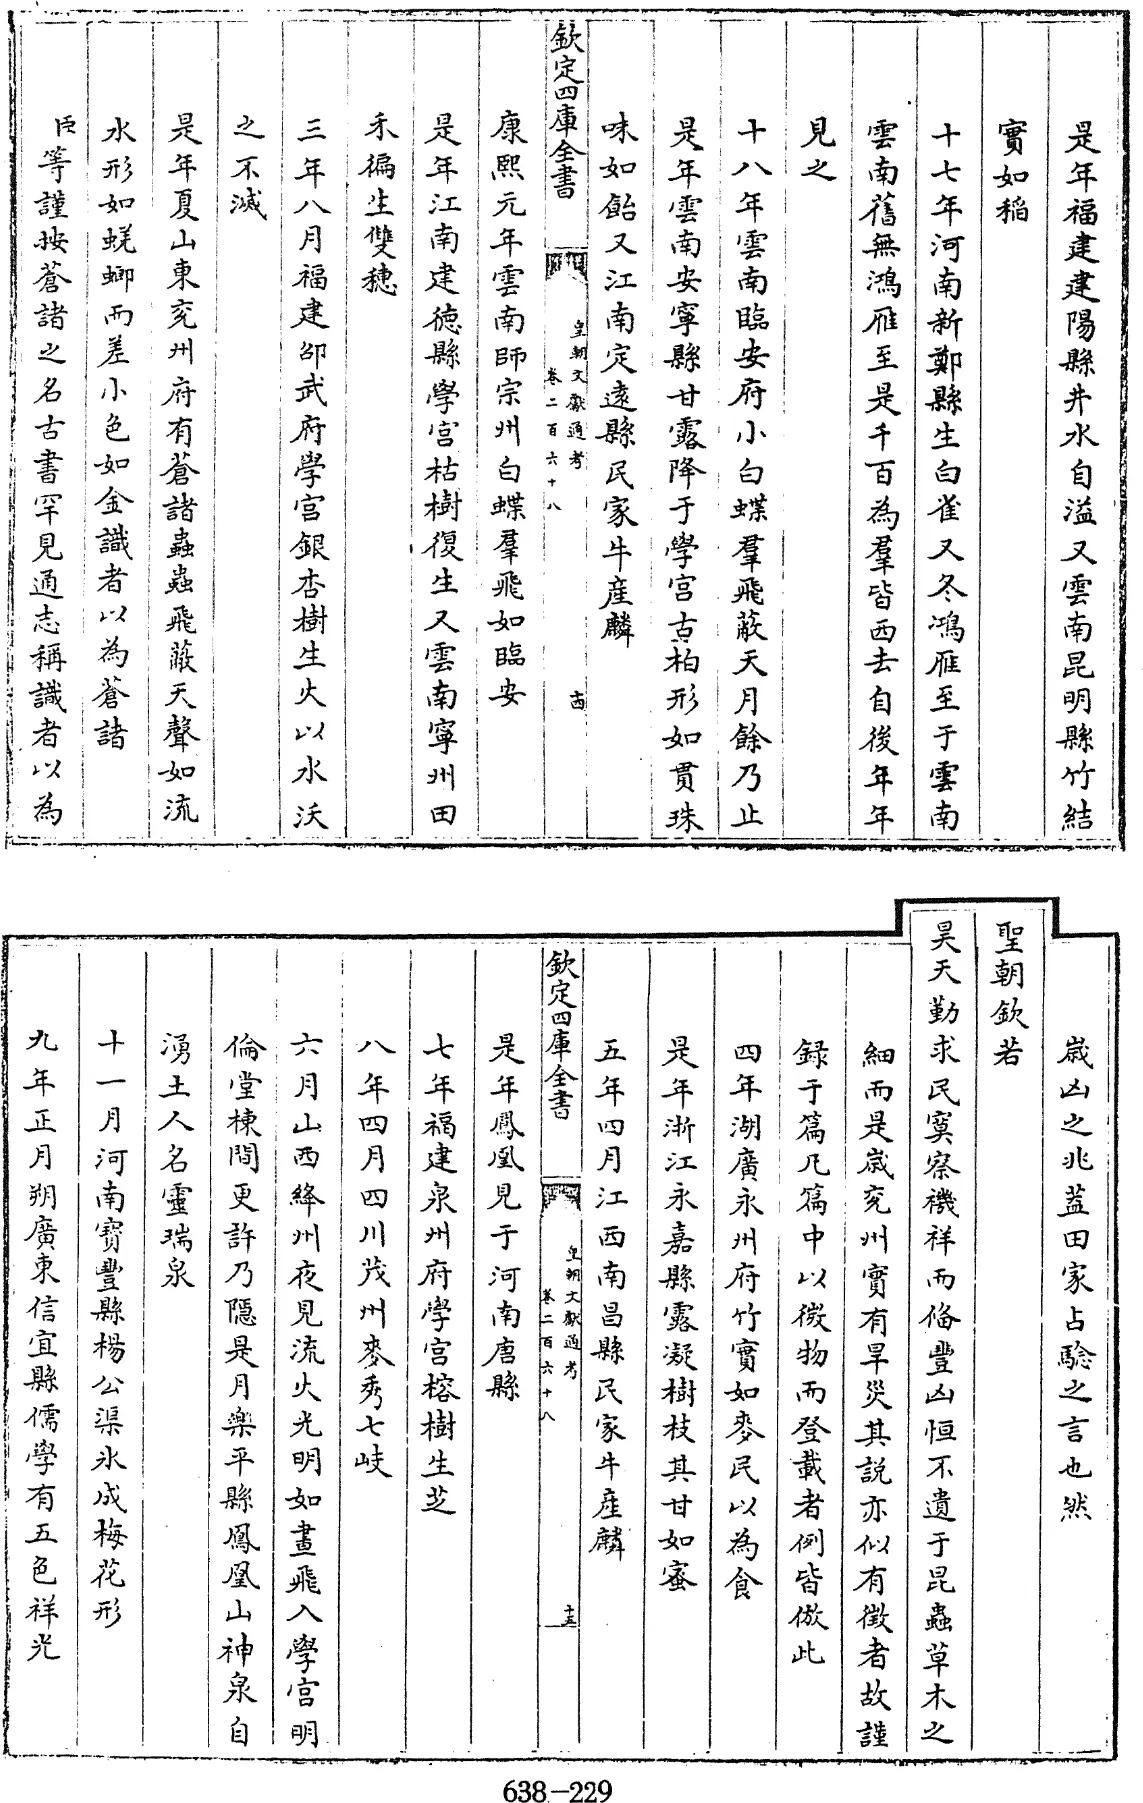 是年福建建陽縣井水自溢又雲南昆明縣竹結
實如稲
十七年河南新鄭縣生白雀又冬鴻雁至于雲南
雲南舊無鴻雁至是千百為羣皆西去自後年年
見之
十八年雲南臨安府小白蝶羣飛蔽天月餘乃止
是年雲南安寧縣甘露降于學宫古柏形如貫珠
味如飴又江南定逺縣民家牛産麟
欽定四庫全書
皇朝文獻通考
卷二百六十八
十四
康熙元年雲南師宗州白蝶羣飛如臨安
是年江南建徳縣學宫枯樹復生又雲南寧州田
禾徧生雙穗
三年八月福建邵武府學宫銀杏樹生火以水沃
之不滅
是年夏山東兖州府有蒼諸蟲蟲飛蔽天聲如流
水形如蜣螂而差小色如金識者以為蒼諸
臣等謹按蒼諸之名古書罕見通志稱識者以為
嵗凶之兆葢田家占騐之言也然
聖朝欽若
昊天勤求民寞察禨祥而脩豐凶恒不遺于昆蟲草木之
細而是嵗兖州實有旱災其説亦似有徴者故謹
録于篇凡篇中以微物而登載者例皆倣此
四年湖廣永州府竹實如麥民以為食
是年浙江永嘉縣露凝樹枝其甘如蜜
五年四月江西南昌縣民家牛産麟
欽定四庫全書
皇朝文獻通考
卷二百六十八
十五
是年鳳凰見于河南唐縣
七年福建泉州府學宫榕樹生芝
八年四月四川茂州麥秀七岐
六月山西絳州夜見流火光明如晝飛入學宫明
倫堂棟間更許乃隱是月樂平縣鳳凰山神泉自
湧土人名靈瑞泉
十一月河南寶豐縣楊公渠氷成梅花形
九年正月朔廣東信宜縣儒學有五色祥光
638-229